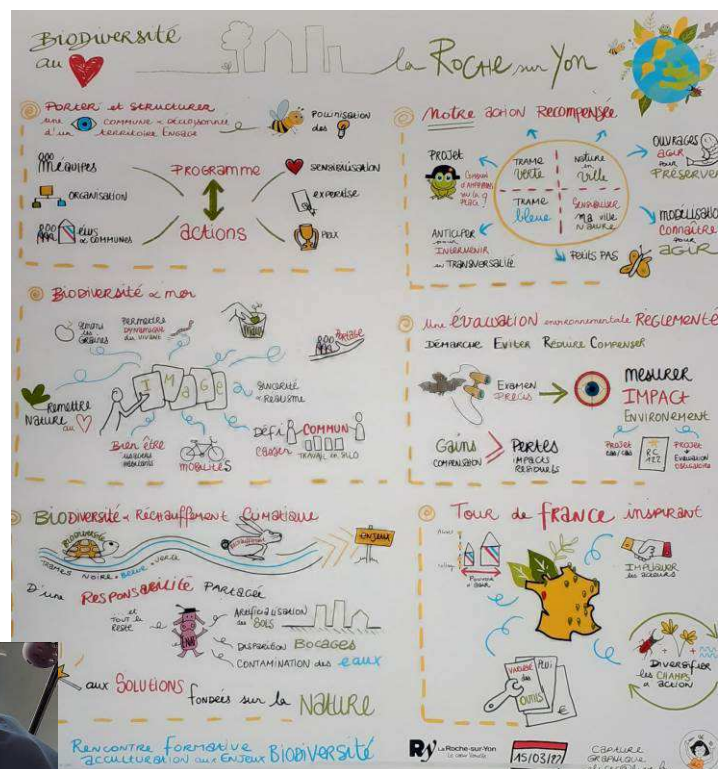 BIODIVERSITÉ
au
la ROCHE sur YON
PORTER et STRUCTURER
une COMMUNE & DÉCLOISONNÉE
d'un TERRITOIRE ENGAGÉ
POLLINISATION
des
ÉQUIPES
ORGANISATION
ÉLUS
& COMMUNES
PROGRAMME
actions
SENSIBILISATION
EXPERTISE
PRIX
Notre action RECOMPENSÉE
PROJET
TRAME
VERTE
NATURE
en
VILLE
TRAME
bleue
SENSIBILISER
ma ville
NATURE
ANTICIPER
pour
INTERVENIR
en TRANSVERSALITÉ
PETITS PAS
OUVRAGES
AGIR
pour
PRÉSERVER
MOBILISATION
CONNAÎTRE
pour
AGIR
BIODIVERSITÉ & moi
SEMONS
des
GRAINES
PERMETTRE
DYNAMIQUE
du VIVANT
PORTAGE
IMAGE
REMETTRE
NATURE
au
SINCÉRITÉ
& RÉALISME
BIEN ÊTRE
MOBILITÉS
DÉFI
CASSER
COMMUN
TRAVAIL en SILO
une ÉVALUATION environnementale RÈGLEMENTÉE
DÉMARCHE EVITER RÉDUIRE COMPENSER
EXAMEN
PRÉCIS
MESURER
IMPACT
ENVIRONEMENT
GAINS
COMPENSATION
≥
PERTES
IMPACTS
RÉSIDUELS
PROJET
cas/cas
R.C
122
PROJET
+
ÉVALUATION
OBLIGATOIRE
BIODIVERSITÉ & RÉCHAUFFEMENT CLIMATIQUE
BIODIVERSITÉ
ENJEUX
TRAMES NOIRE • BLEUE • VERTE
D'une RESPONSABILITÉ PARTAGÉE
et
TOUT le
RESTE
ARTIFICIALISATION
des SOLS
DISPARITION BOCAGES
CONTAMINATION des eaux
aux SOLUTIONS fondées sur la NATURE
TOUR de FRANCE INSPIRANT
POUVOIR
d'AGIR
IMPLIQUER
les ACTEURS
VARIÉTÉ
des
OUTILS
PLUi
€
DIVERSIFIER
les CHAMPS
d'ACTION
RENCONTRE FORMATIVE
ACCULTURATION aux ENJEUX BIODIVERSITÉ
Ry La Roche-sur-Yon
15/03/22
CAPTURE
GRAPHIQUE